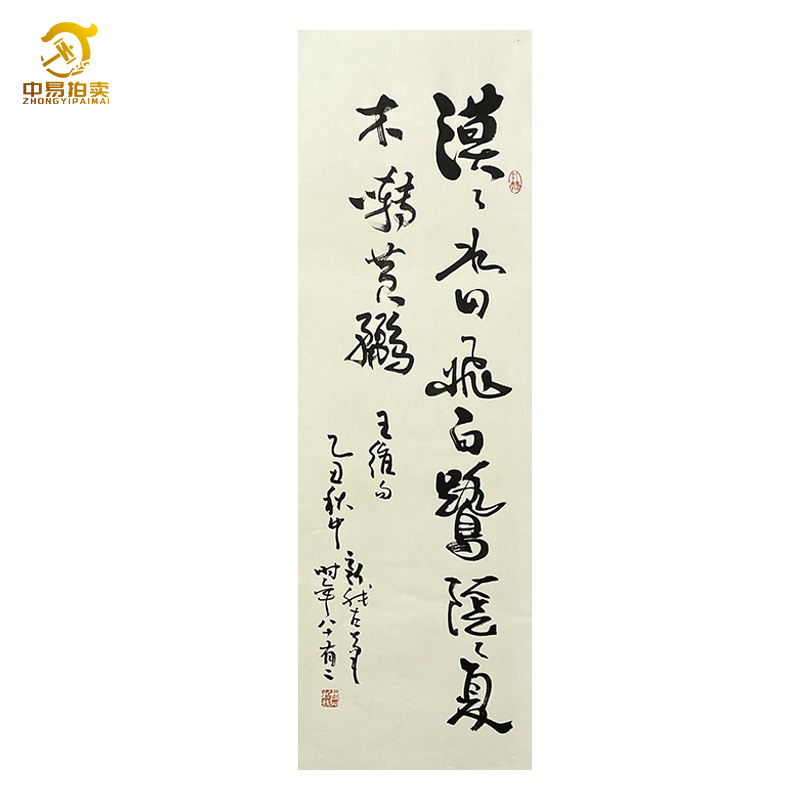 中易拍卖
ZHONGYIPAIMAI
漠々水田飛白鷺陰々夏
木囀黄鸝
王維句
乙丑秋中
新我左筆
時年八十有二